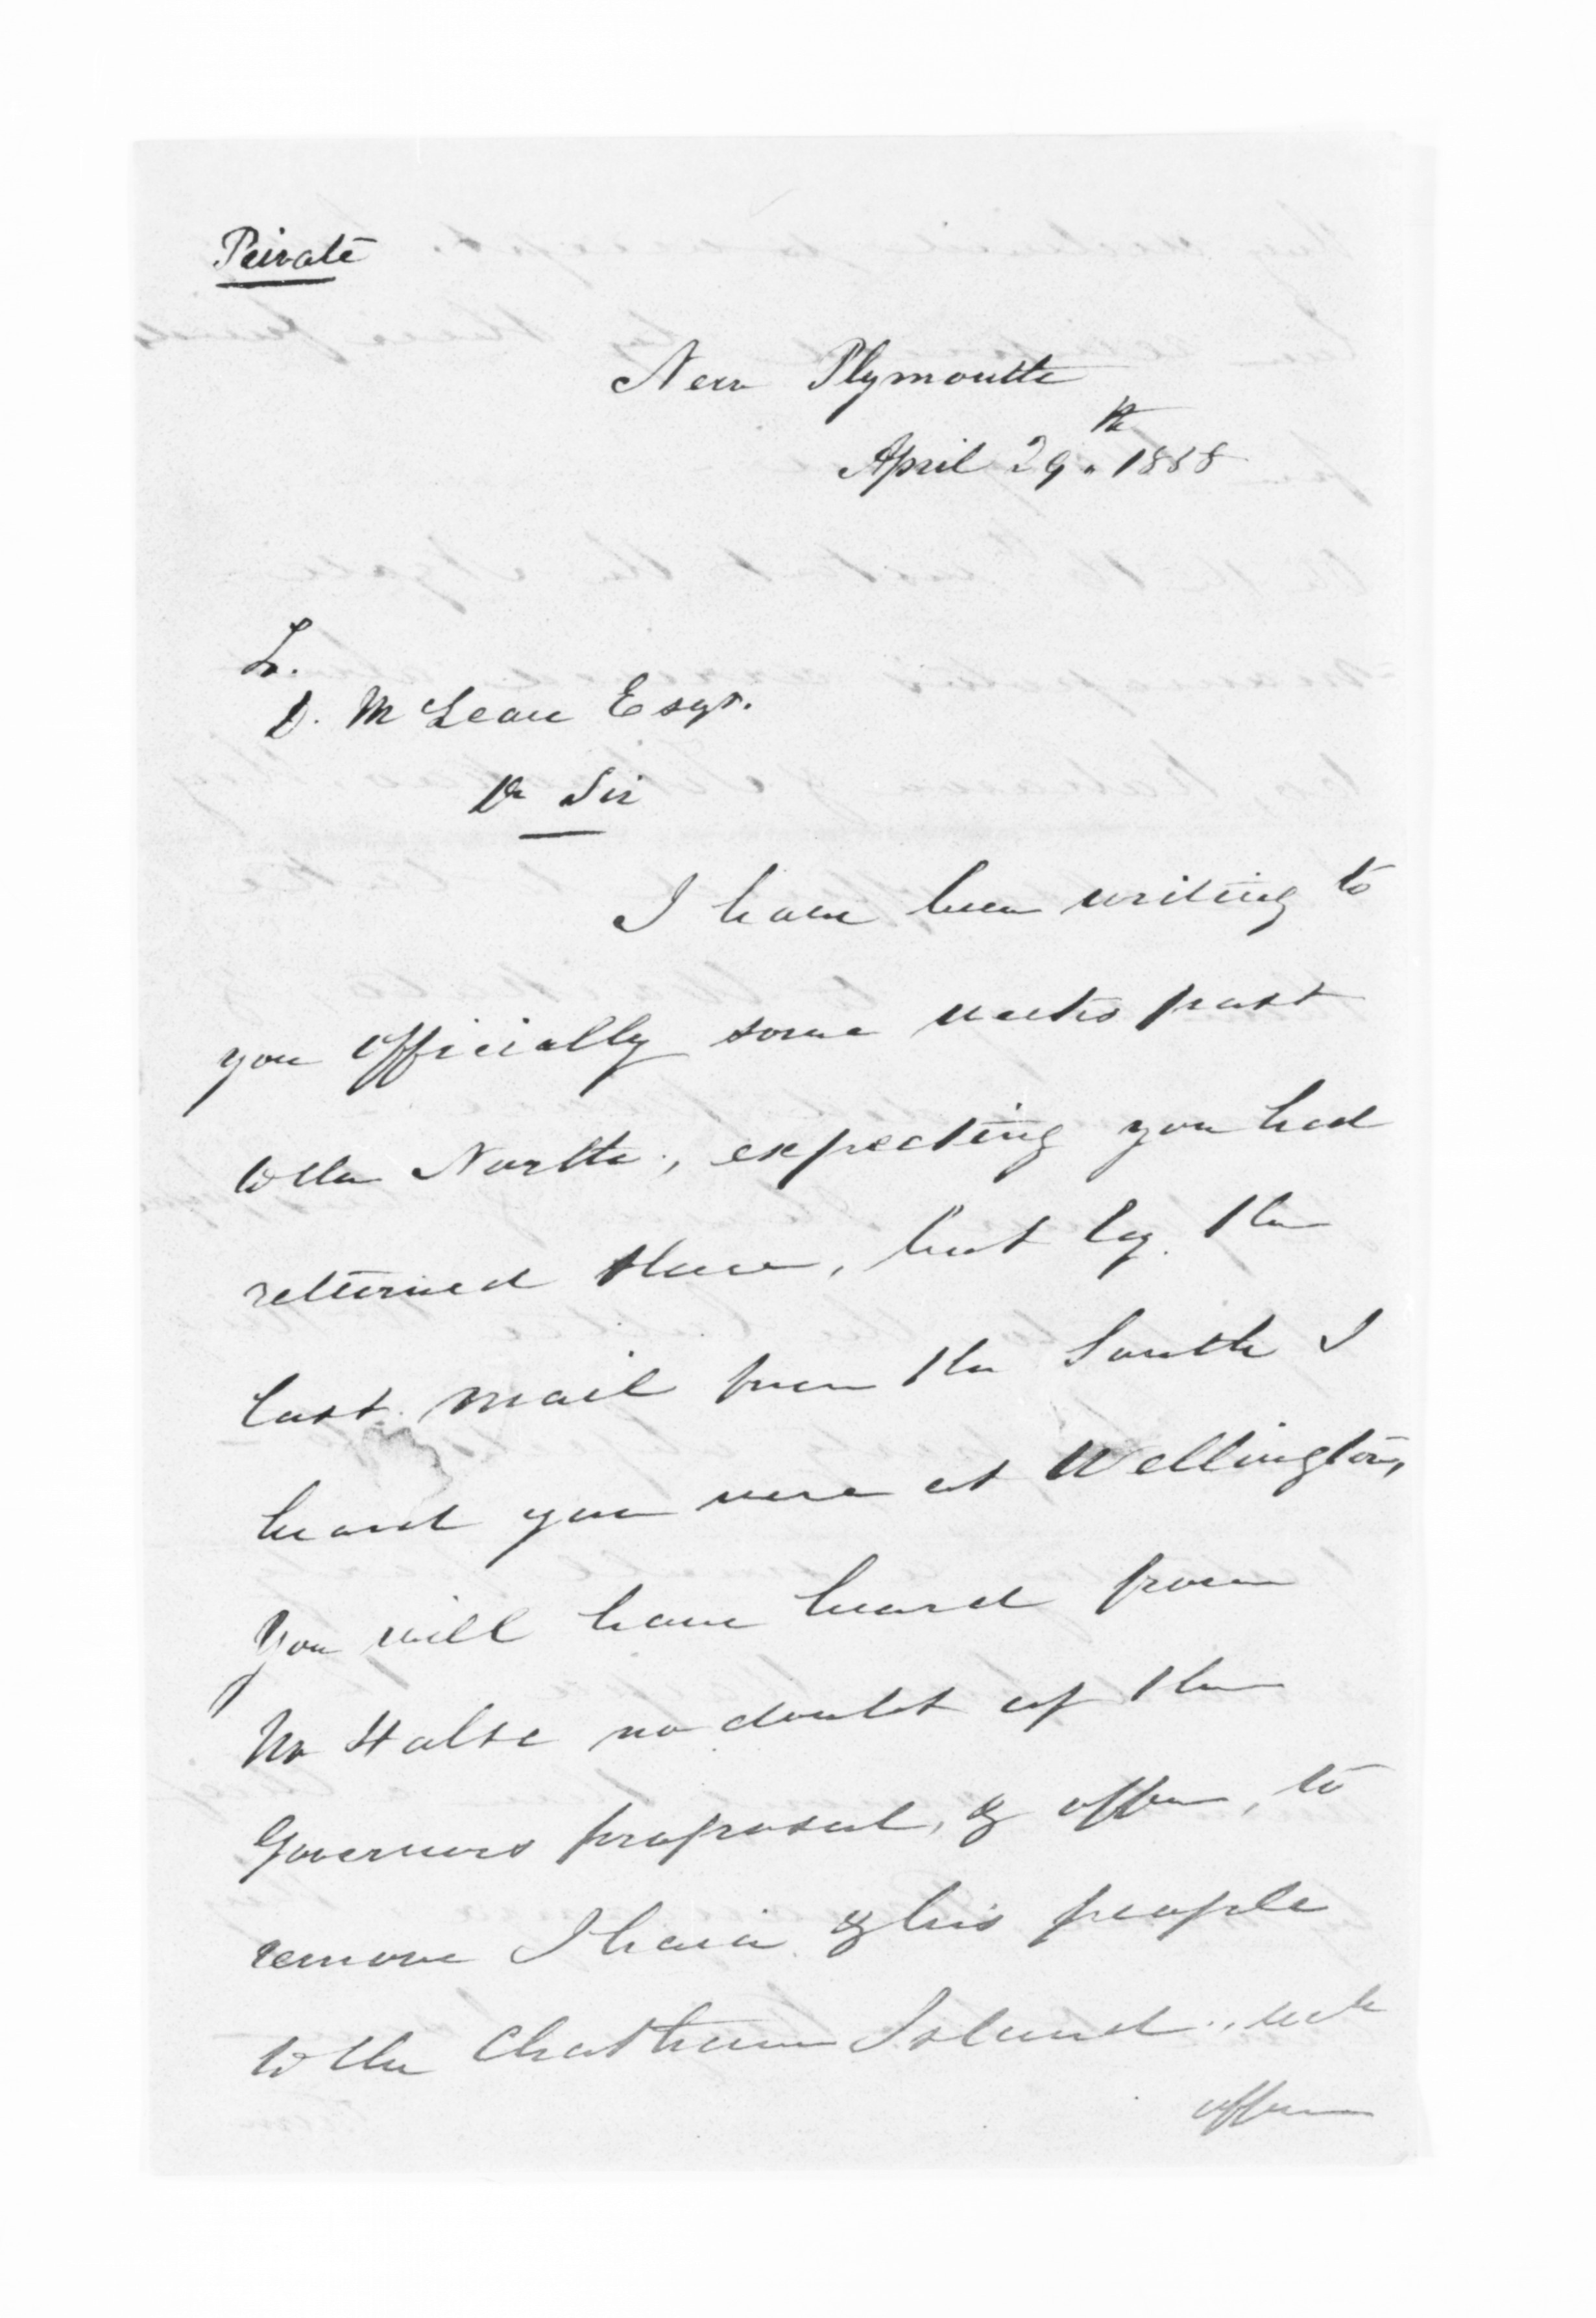 Private
New Plymouth
April 29th. 1858
D. McLean Esqr.
Dr Sir
I have been writing to
you officially some weeks past
to the North, expecting you had
returned there, but by the
last mail from the South I
heard you were at Wellington,
You will have heard from
Mr Halse no doubt of the
Governors proposal, & offer, to
remove Ihaia & his people
to the Chatham Island.,
offer